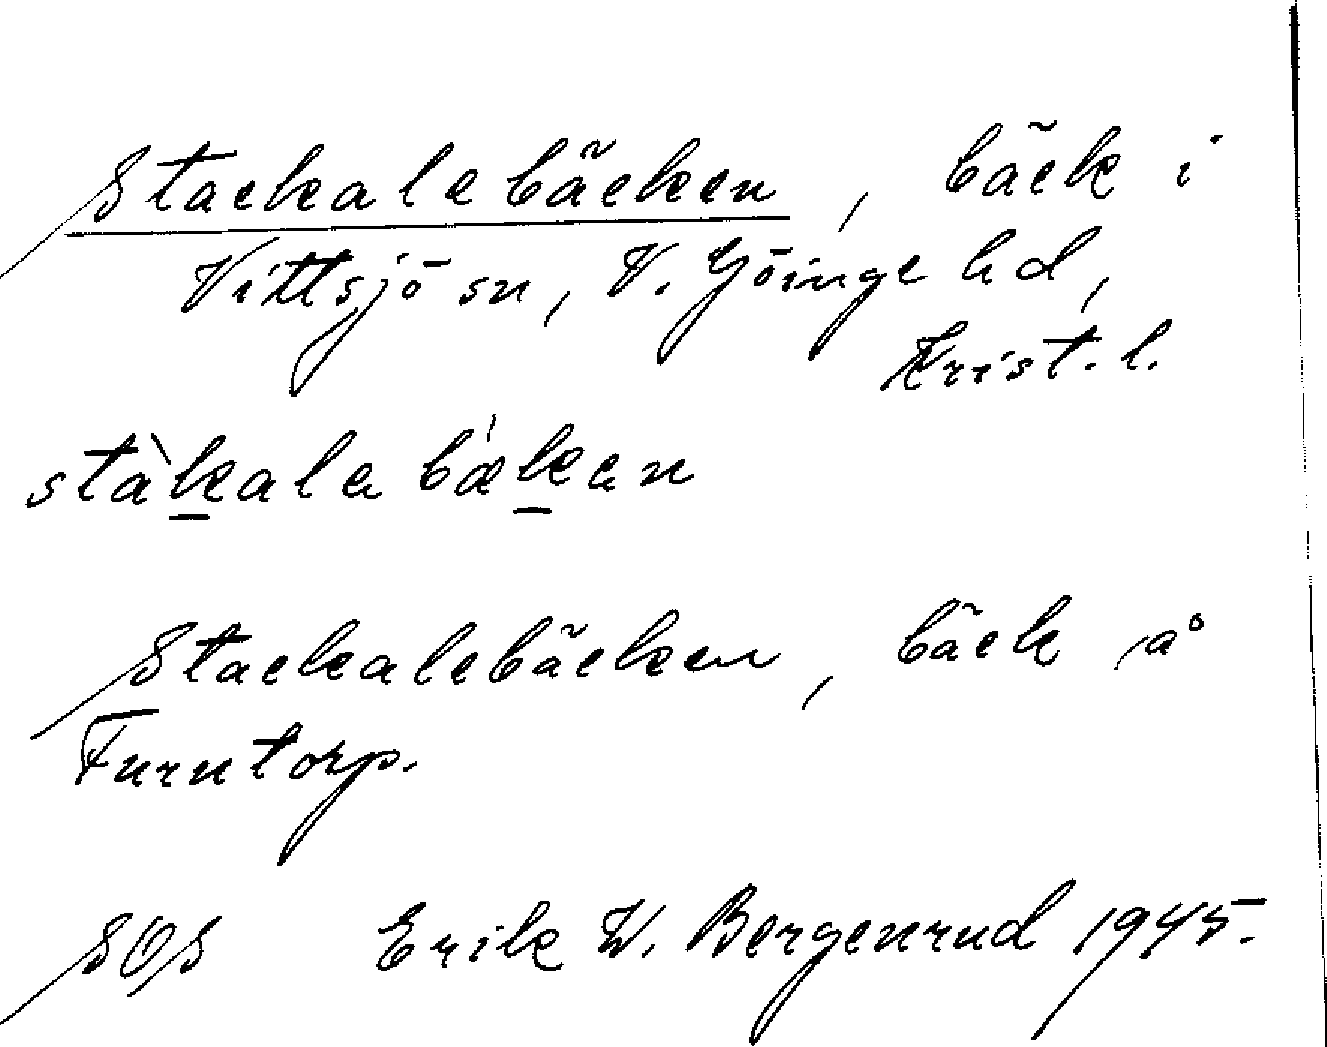 Stackalebäcken, bäck i
Vittsjö sn, V. Göinge hd,
Krist. l.
stàkala bǽkan
Stackalebäcken, bäck å
Furutorp.
SOS Erik W. Bergenrud 1945.